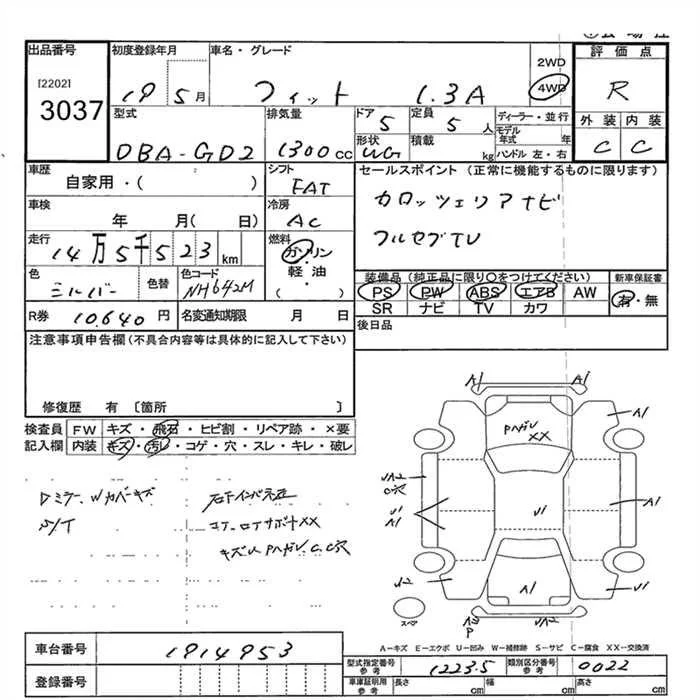 出品番号
[2202]
3037
初度登録年月
19 5月
車名・グレード
フィット 1.3A
2WD
4WD
評価点
R
外装 内装
C C
型式
DBA-GD2
排気量
1300cc
ドア
5
定員
5人
形状
積載
kg
ディーラー・並行
モデル年式 年
ハンドル 左・右
車歴
自家用・( )
シフト
FAT
セールスポイント (正常に機能するものに限ります)
カロッツェリアナビ
フルセグTV
車検
年 月( 日)
冷房
AC
走行
14万5千523km
燃料
ガソリン
軽油
( ・ )
色
シルバー
色替
色コード
NH642M
装備品 (純正品に限り○をつけてください)
PS PW ABS エアB AW
SR ナビ TV カワ
新車保証書
有・無
R券 10,640円
名変通知期限 月 日
後日品
注意事項申告欄(不具合内容等は具体的に記入して下さい)
修復歴 有 [箇所 ]
検査員記入欄
FW キズ・飛石・ヒビ割・リペア跡・×要
内装 キズ・汚レ・コゲ・穴・スレ・キレ・破レ
Dミラー、Wカバーキズ
S/T
コア、ロアサポートXX
キズU PハガレC,C穴
A1 A1
A1
PハガレXX
UA2
C穴
U1
A1
U1
A1
U2
A1
U1
スペア
P
UA2
A-キズ E-エクボ U-凹み W-補修跡 S-サビ C-腐食 XX-交換済
車台番号
1914953
登録番号
型式指定番号 参考
12235
類別区分番号 参考
0022
車庫証明用 参考
長さ cm
幅 cm
高さ cm